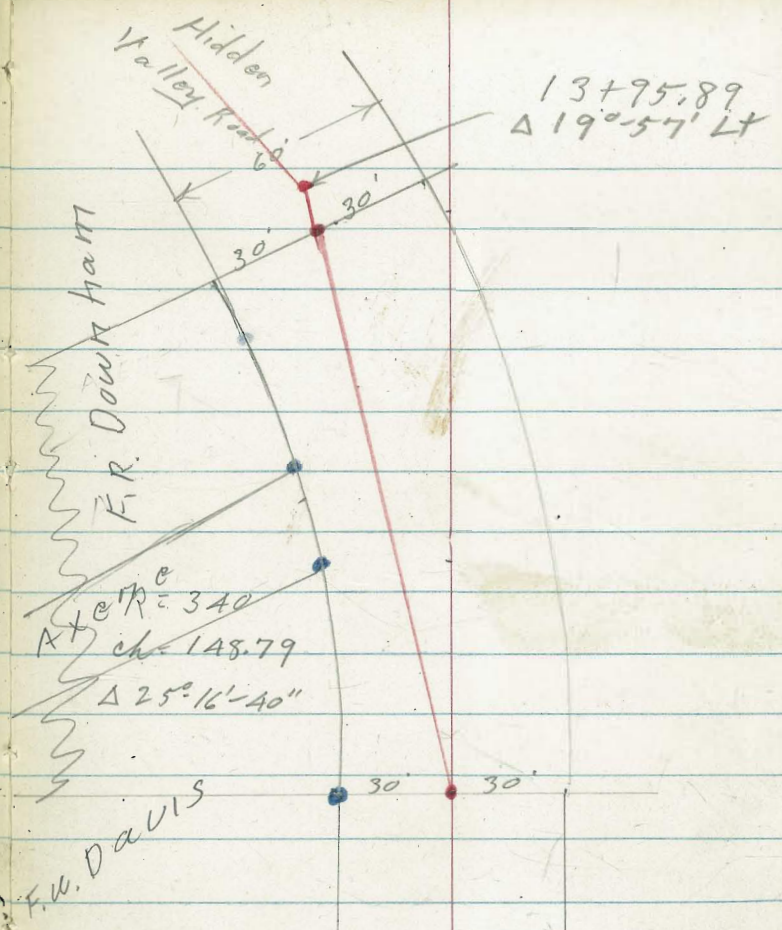 Hidden
Valley Road
13+95.89
Δ 19°-57' Lt
60'
30'
30'
F.R. Downham
R = 340
ch = 148.79
Δ 25°-16'-40"
30'
30'
F.W. DAVIS